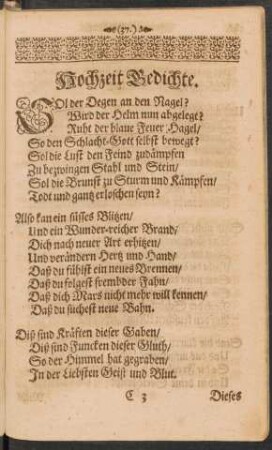 (37.)
Hochzeit Gedichte.
SOl der Degen an den Nagel?
Wird der Helm nun abgelegt?
Ruht der blaue Feuer Hagel/
So den Schlacht-Gott selbst bewegt?
Sol die Lust den Feind zudämpfen
Zu bezwingen Stahl und Stein/
Sol die Brunst zu Sturm und Kämpfen/
Todt und gantz erloschen seyn?
Also kan ein süsses Blitzen/
Und ein Wunder-reicher Brand/
Dich nach neuer Art erhitzen/
Und verändern Hertz und Hand/
Daß du fühlst ein neues Brennen/
Daß du folgest frembder Fahn/
Daß dich Mars nicht mehr will kennen/
Daß du suchest neue Bahn.
Diß sind Kräften dieser Gaben/
Diß sind Funcken dieser Gluth/
So der Himmel hat gegraben/
In der Liebsten Geist und Blut.
C 3 Dieses